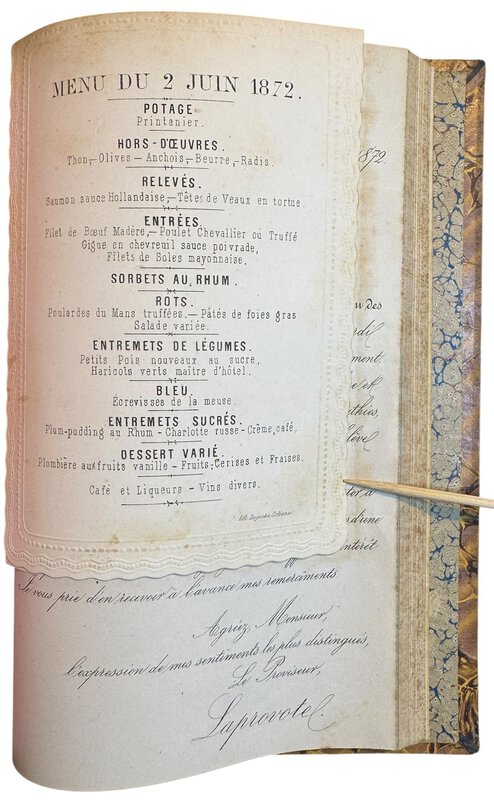 MENU DU 2 JUIN 1872.
POTAGE
Printanier.
HORS-D'ŒUVRES.
Thon,- Olives - Anchois,- Beurre,- Radis.
RELEVÉS.
Saumon sauce Hollandaise,- Têtes de Veaux en tortue.
ENTRÉES.
Filet de Bœuf Madère,- Poulet Chevallier ou Truffé
Gigue en chevreuil sauce poivrade,
Filets de Soles mayonnaise.
SORBETS AU RHUM.
RÔTS.
Poulardes du Mans truffées.- Pâtés de foies gras
Salade variée.
ENTREMETS DE LÉGUMES.
Petits Pois nouveaux au sucre.
Haricots verts maître d'hôtel.
BLEU.
Écrevisses de la meuse.
ENTREMETS SUCRÉS.
Plum-pudding au Rhum - Charlotte russe - Crême,café.
DESSERT VARIÉ.
Plombière aux fruits vanille - Fruits,- Cerises et Fraises.
Café et Liqueurs - Vins divers.
1872
des
et
intérêt
Je vous prie d'en recevoir à l'avance mes remerciments.
Agréez, Monsieur,
l'expression de mes sentiments les plus distingués,
Le Proviseur,
Laprovote.